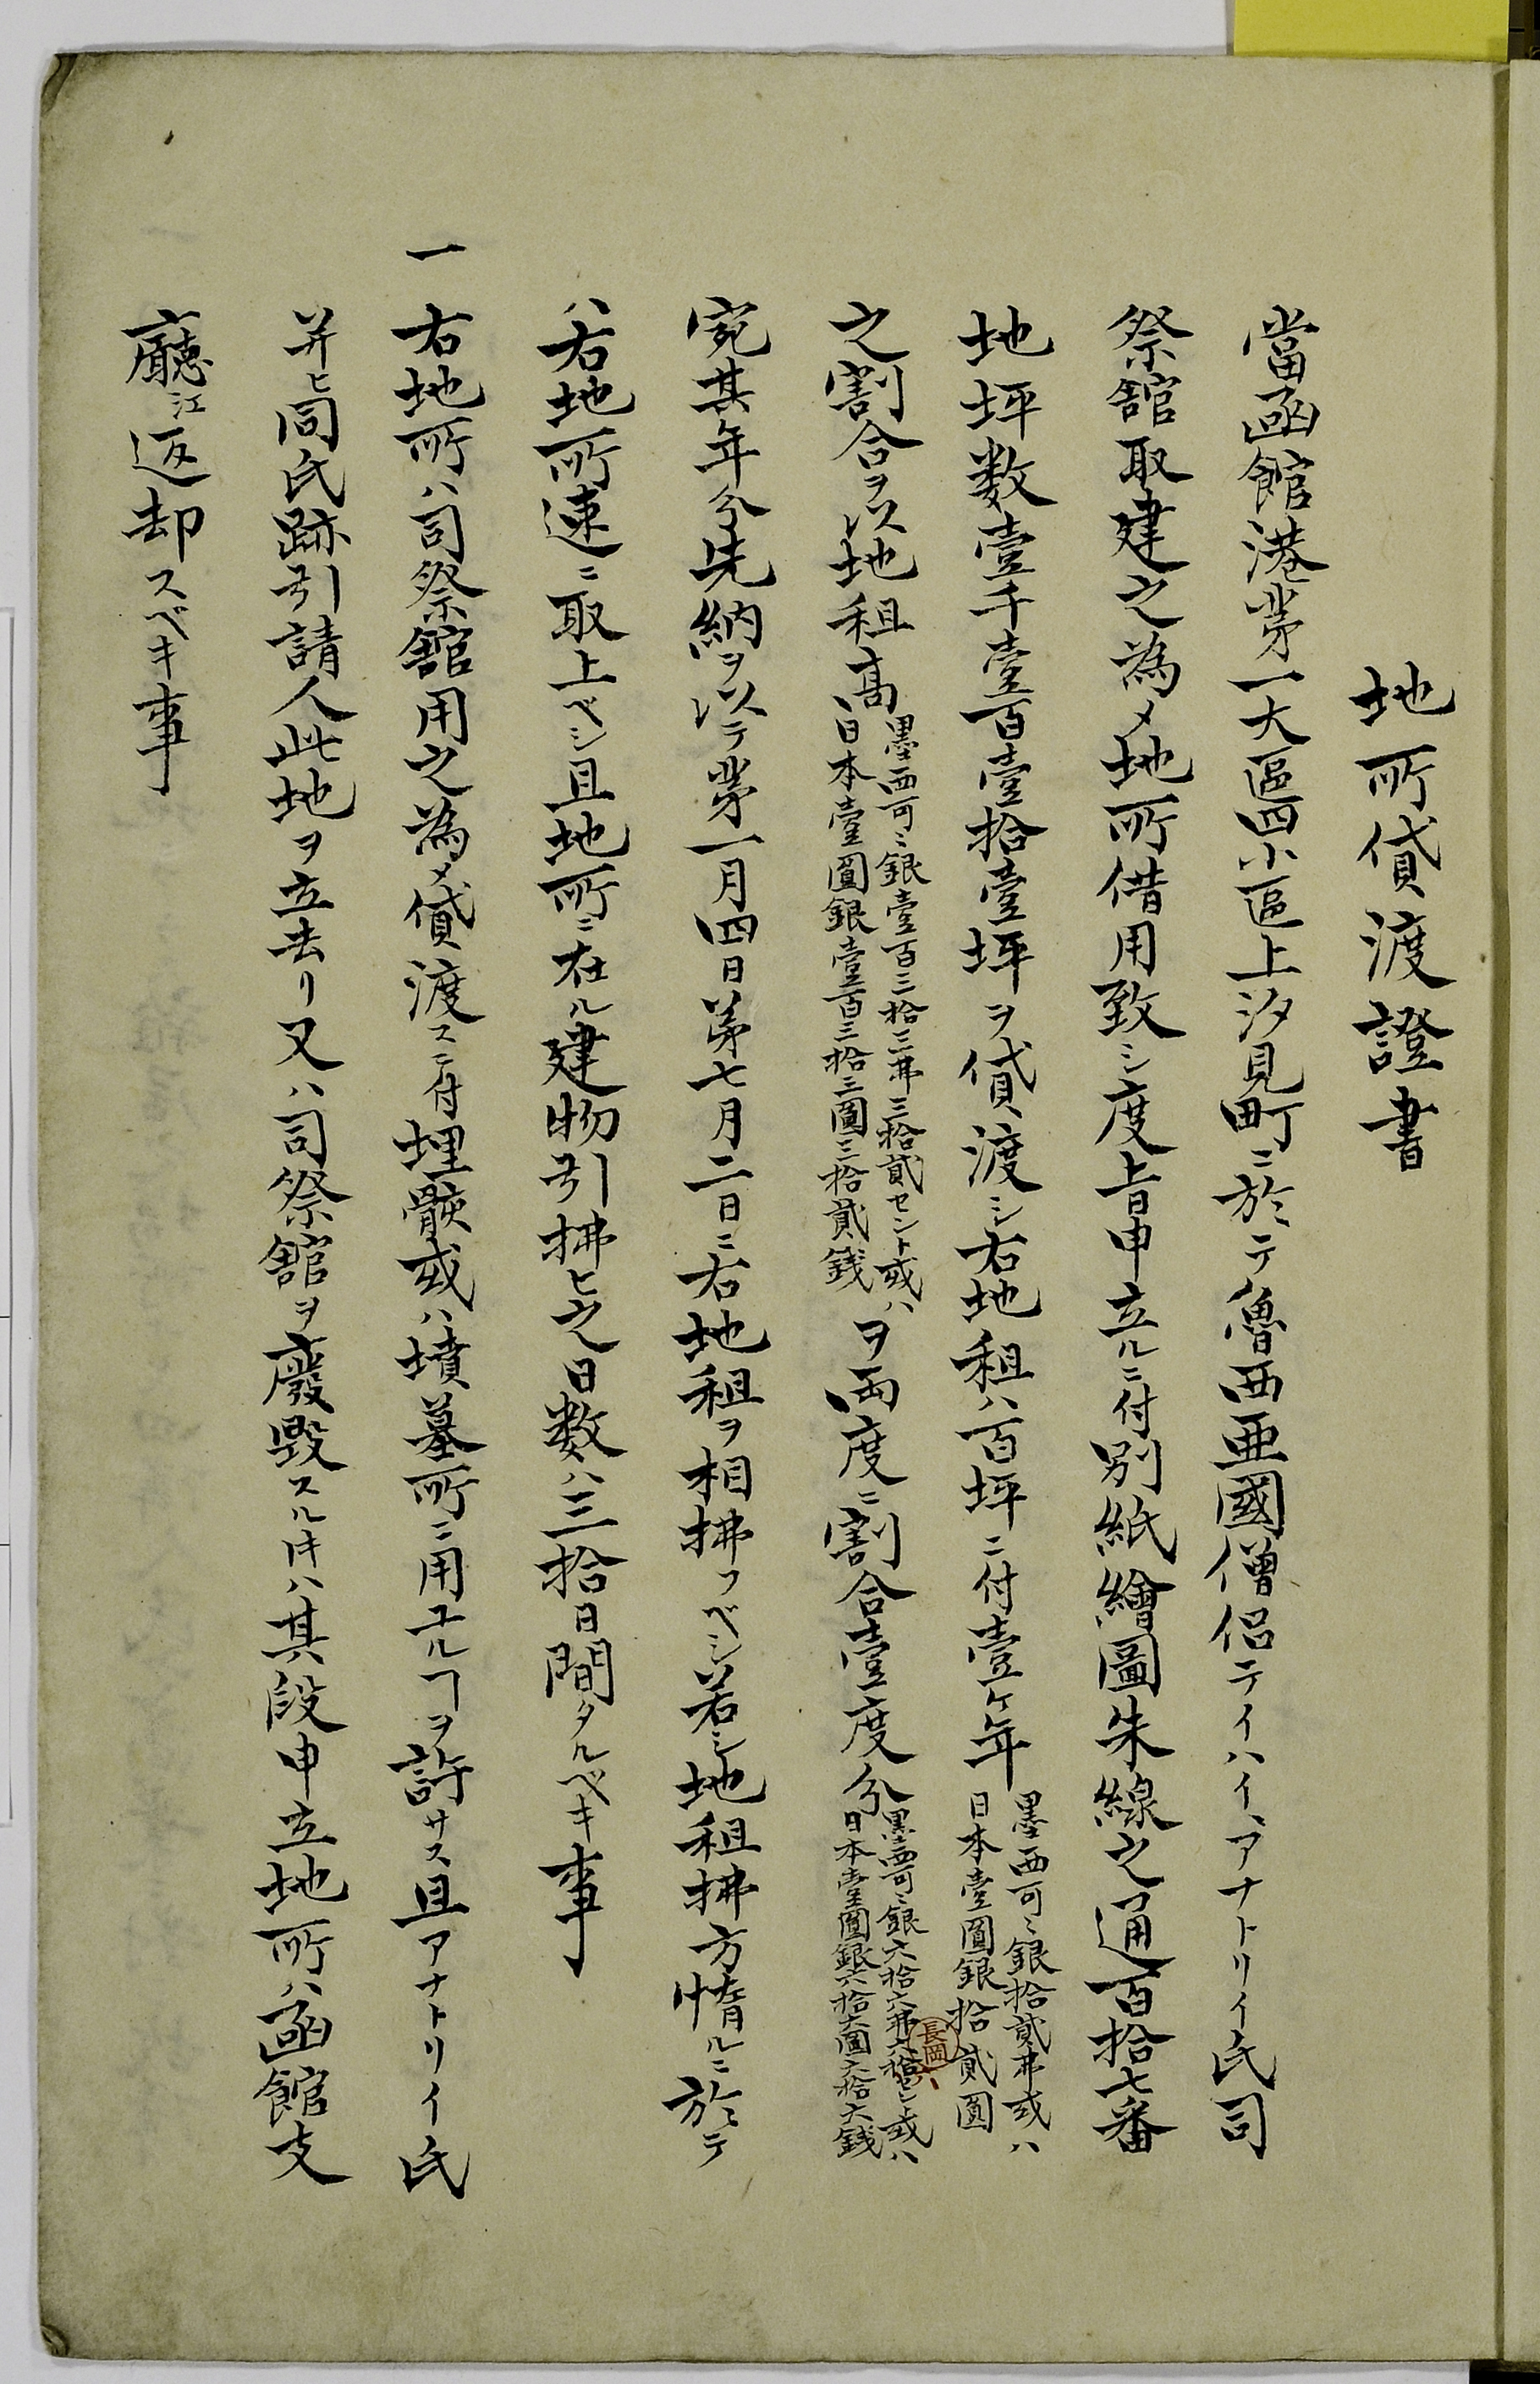 地所貸渡證書
當函館港苐一大區四小區上汐見町ニ於テ魯西亜國僧侶テイハイ、アナトリイ氏司
祭舘取建之為メ地所借用致シ度旨申立ルニ付別紙繪圖朱線之通百拾七番
地坪数壹千壹百壹拾壹坪ヲ貸渡シ右地租ハ百坪ニ付壹ヶ年
墨西可ミ銀拾貳弗或ハ
日本壹圓銀拾貳圓
之割合ヲ以地租高
墨西可ミ銀壹百三拾三弗三拾貳セント或ハ
日本壹圓銀壹百三拾三圓三拾貳銭
ヲ両度ニ割合壹度分
墨西可ミ銀六拾六弗六拾六セント或ハ
日本壹圓銀六拾六圓六拾六銭
長岡
宛其年分先納ヲ以テ苐一月四日第七月二日ニ右地租ヲ相拂フベシ若シ地租拂方惰ルニ於テ
ハ右地所速ニ取上ベシ且地所ニ在ル建物引拂ヒ之日数ハ三拾日間タルベキ事
一 右地所ハ司祭舘用之為メ貸渡スニ付埋骸或ハ墳墓所ニ用ユルヿヲ許サス且アナトリイ氏
并ヒ同氏跡引請人此地ヲ立去リ又ハ司祭舘ヲ廢毀スル𪜈ハ其段申立地所ハ函館支
廳江返却スベキ事